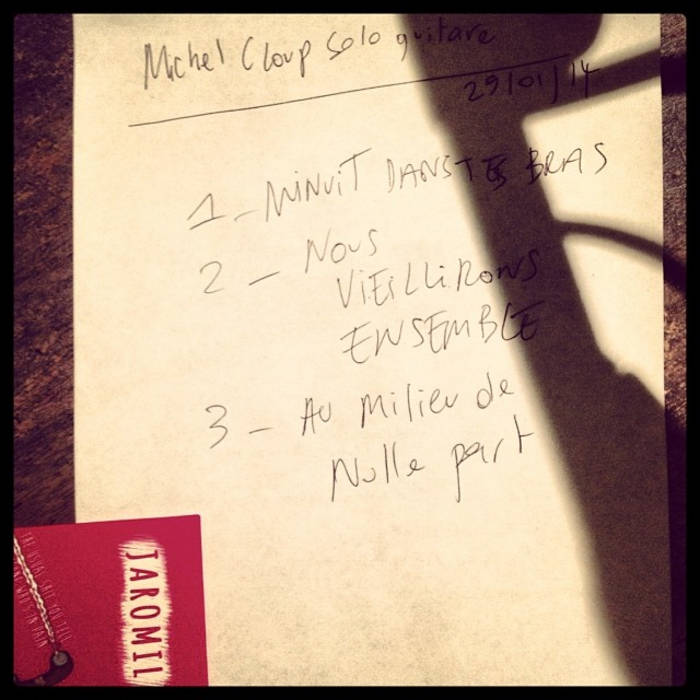 Michel Cloup solo guitare
29/01/14
1 - MINUIT DANS TES BRAS
2 - NOUS
VIEILLIRONS
ENSEMBLE
3 - AU MILIEU de
Nulle part
JAROMIL